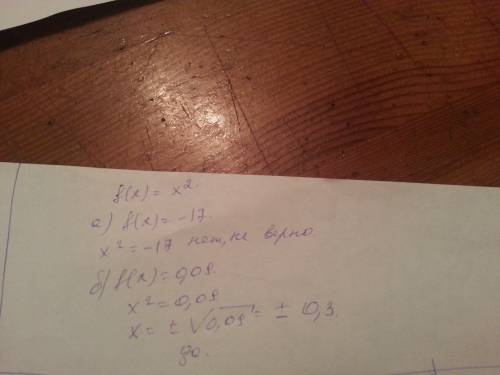 f(x) = x².
а) f(x) = -17.
x² = -17 нет, не верно
б) f(x) = 0,09.
x² = 0,09
x = ± √0,09 = ± 0,3.
да.